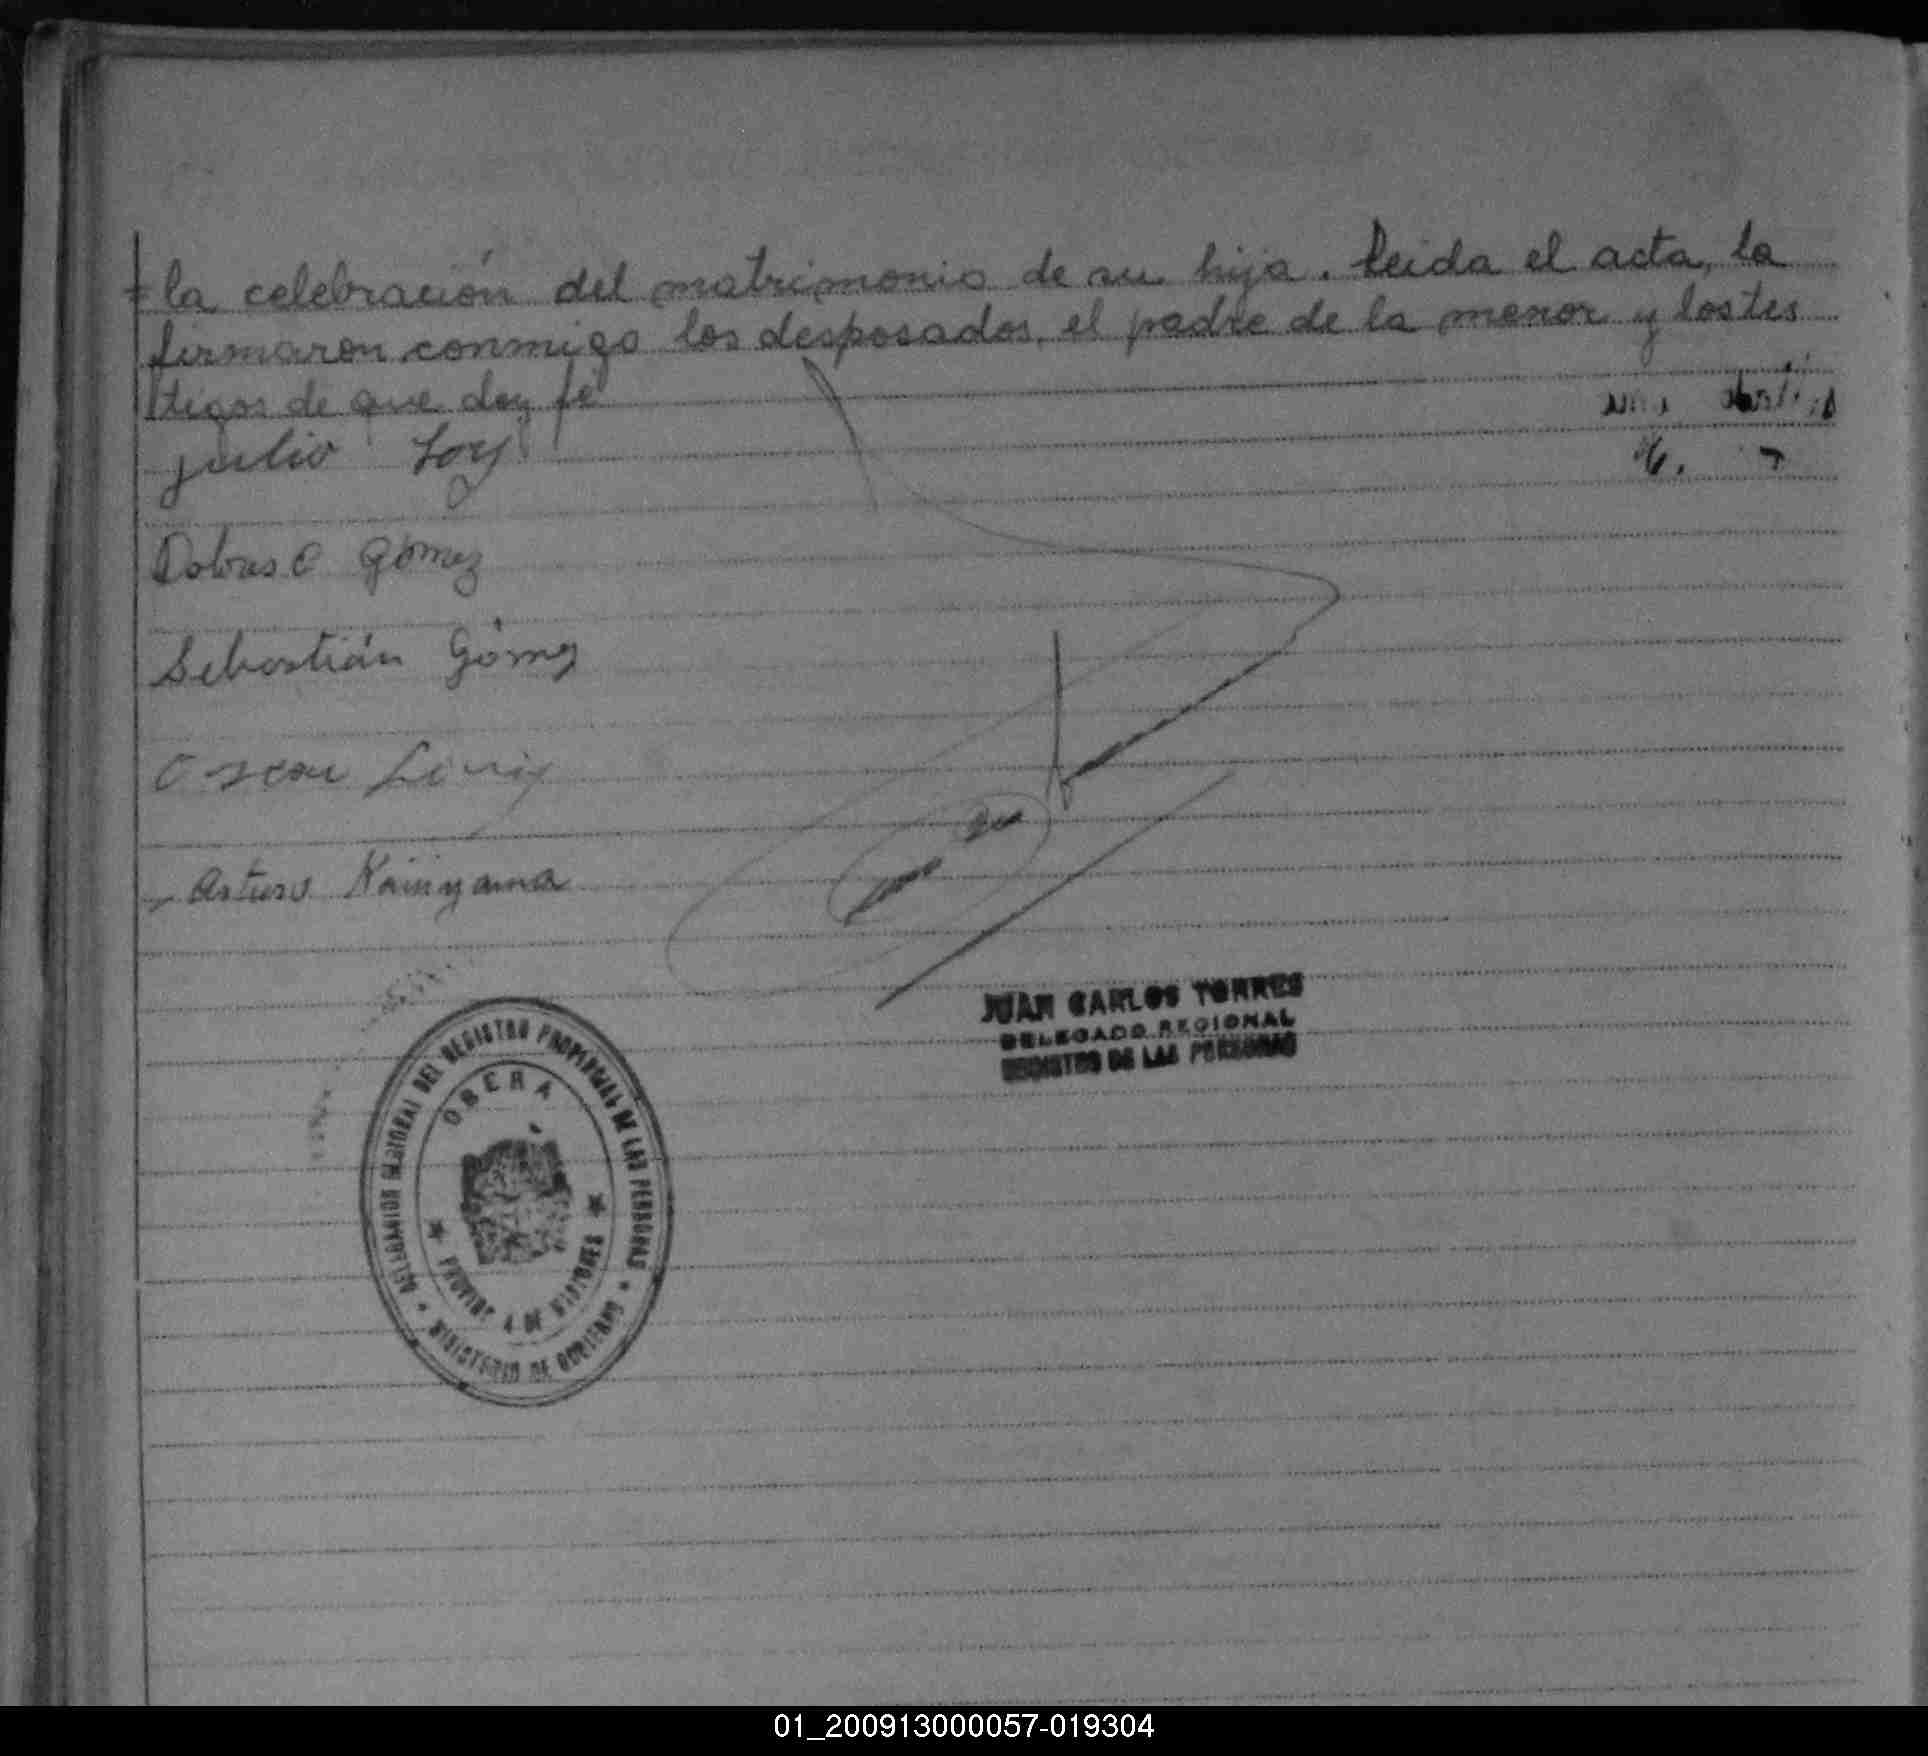 =la celebración del matrimonio de su hija. Leida el acta, la
firmaron conmigo los desposados, el padre de la menor y los tes
tigos de que doy fé
Julio
Dolores C Gómez
Sebastián Gómez
Oscar
Arturo
JUAN CARLOS TORRES
DELEGADO REGIONAL
REGISTRO DE LAS PERSONAS
DELEGACION REGIONAL DEL REGISTRO PROVINCIAL DE LAS PERSONAS
OBERA
PROVINCIA DE MISIONES
MINISTERIO DE GOBIERNO
01_200913000057-019304